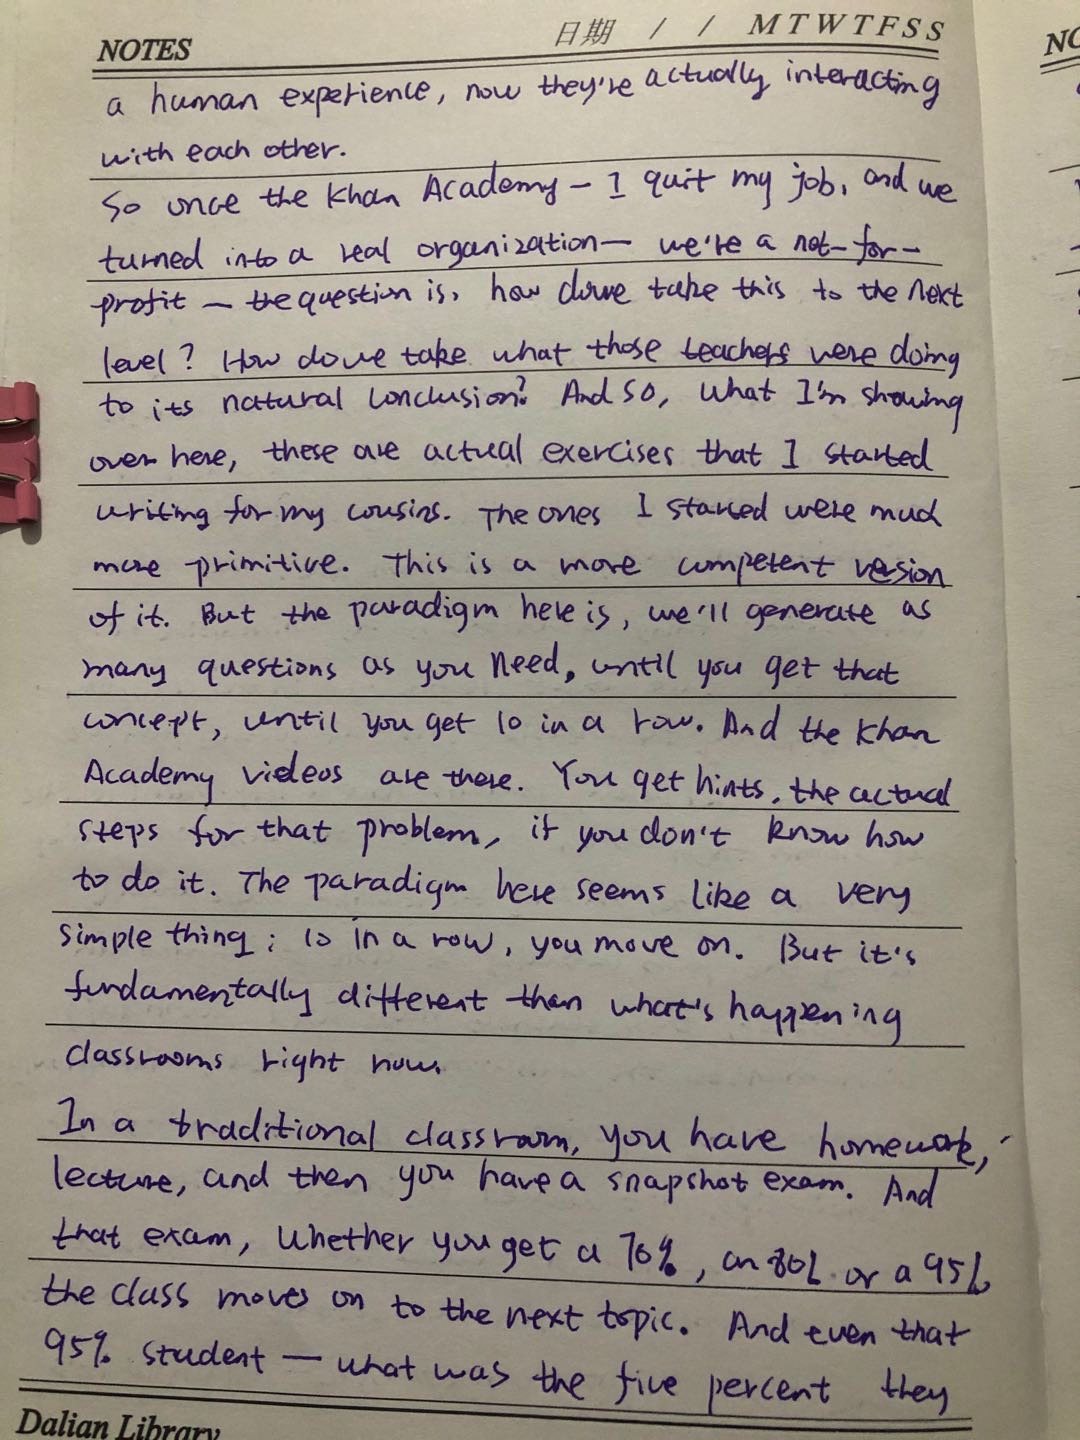 NOTES 日期 / / M T W T F S S
a human experience, now they're actually interacting
with each other.
So once the Khan Academy — I quit my job, and we
turned into a real organization — we're a not-for-
profit — the question is, how do we take this to the next
level? How do we take what those teachers were doing
to its natural conclusion? And so, what I'm showing
over here, these are actual exercises that I started
writing for my cousins. The ones I started were much
more primitive. This is a more competent version
of it. But the paradigm here is, we'll generate as
many questions as you need, until you get that
concept, until you get 10 in a row. And the Khan
Academy videos are there. You get hints, the actual
steps for that problem, if you don't know how
to do it. The paradigm here seems like a very
simple thing: 10 in a row, you move on. But it's
fundamentally different than what's happening
classrooms right now.
In a traditional classroom, you have homework,
lecture, and then you have a snapshot exam. And
that exam, whether you get a 70%, an 80% or a 95%
the class moves on to the next topic. And even that
95% student — what was the five percent they
Dalian Library